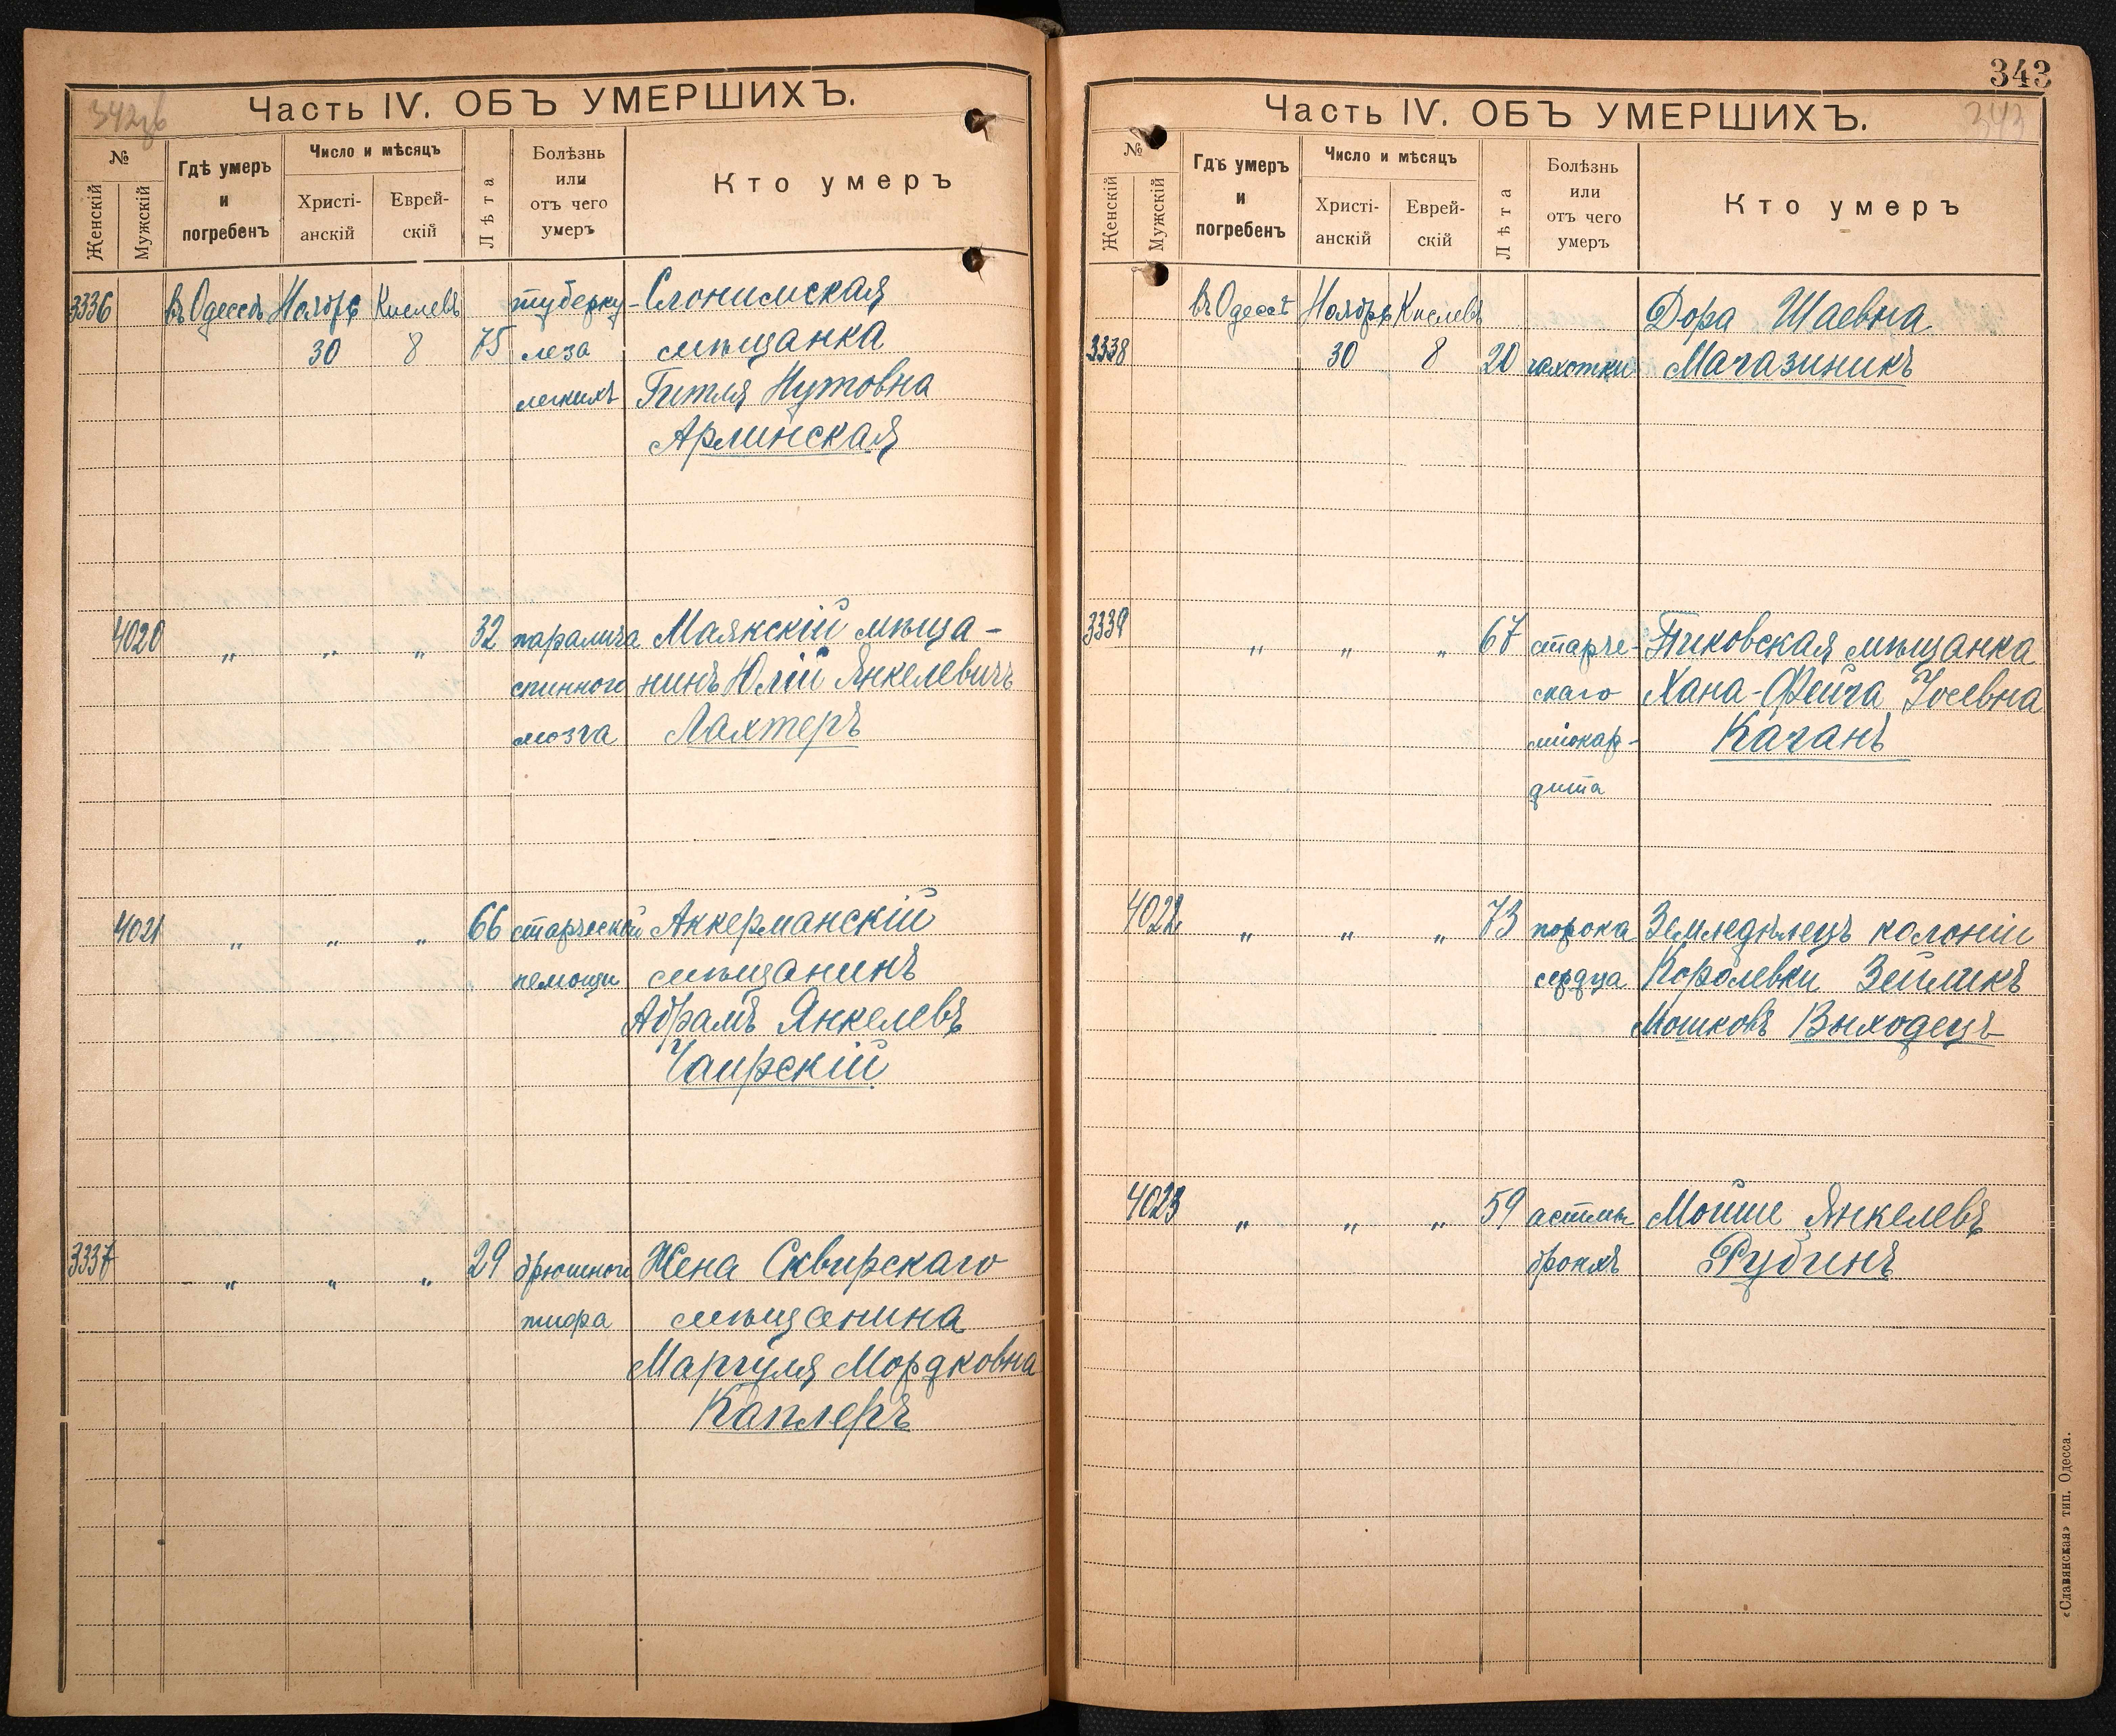 342об
Часть IV. ОБЪ УМЕРШИХЪ.
№
Женскій
Мужскій
Гдѣ умеръ
и
погребенъ
Число и мѣсяцъ
Христі-
анскій
Еврей-
скій
Лѣта
Болѣзнь
или
отъ чего
умеръ
Кто умеръ
3336 въ Одессѣ Ноября Кислевъ туберку- Слонимская
30 8 75 леза мѣщанка
легкихъ Гитля Нутовна
Арлинская
4020 " " " 32 паралича Маякскій мѣща-
спинного нинъ Юлій Янкелевичъ
мозга Лахтеръ
4021 " " " 66 старческой Аккерманскій
немощи мѣщанинъ
Абрамъ Янкелевъ
Чаирскій
3337 " " " 29 брюшного Жена Сквирскаго
тифа мѣщанина
Маргуля Мордковна
Каплеръ
343
343
Часть IV. ОБЪ УМЕРШИХЪ.
№
Женскій
Мужскій
Гдѣ умеръ
и
погребенъ
Число и мѣсяцъ
Христі-
анскій
Еврей-
скій
Лѣта
Болѣзнь
или
отъ чего
умеръ
Кто умеръ
въ Одессѣ Ноября Кислевъ Дора Шаевна
3338 30 8 20 чахотки Магазиникъ
3339 " " " 67 старче- Пиковская мѣщанка
скаго Хана-Фейга Іосевна
міокар- Каганъ
дита
4022 " " " 73 порока Земледѣлецъ колоніи
сердца Королевки Зейликъ
Мошковъ Выходецъ
4023 " " " 59 астмы Мойше Янкелевъ
бронхъ Рубинъ
«Славянская» тип. Одесса.